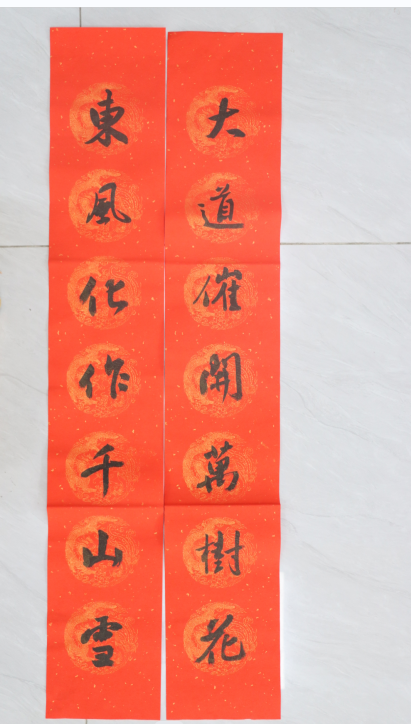 大道催開萬樹花
東風化作千山雪